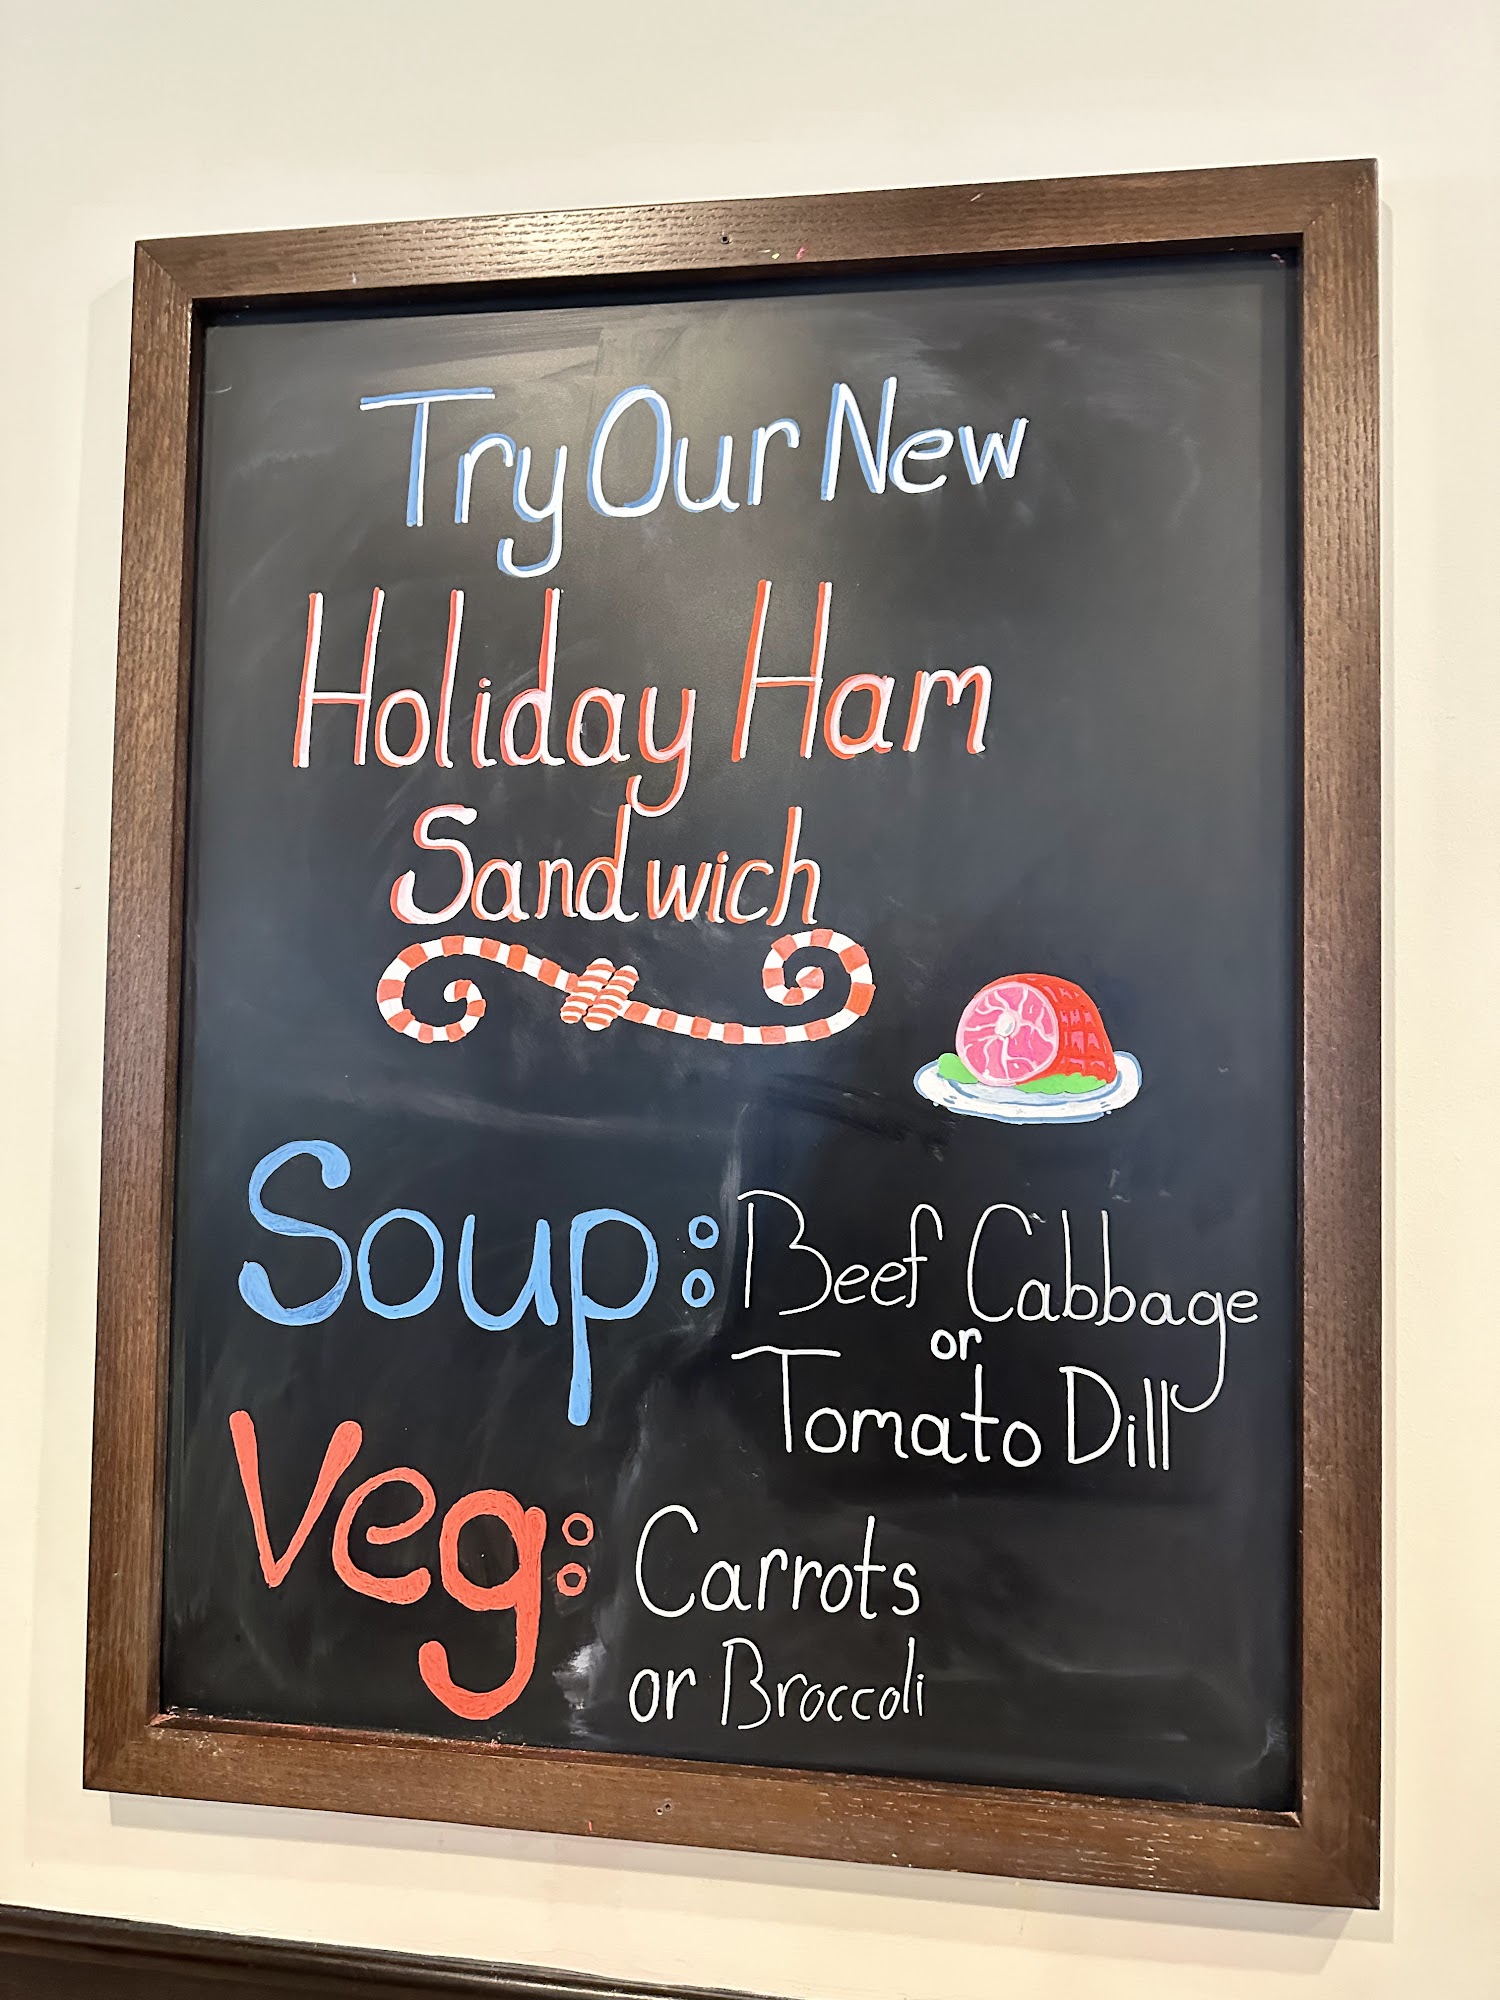 Try Our New
Holiday Ham
Sandwich
Soup: Beef Cabbage
or
Tomato Dill
Veg: Carrots
or Broccoli